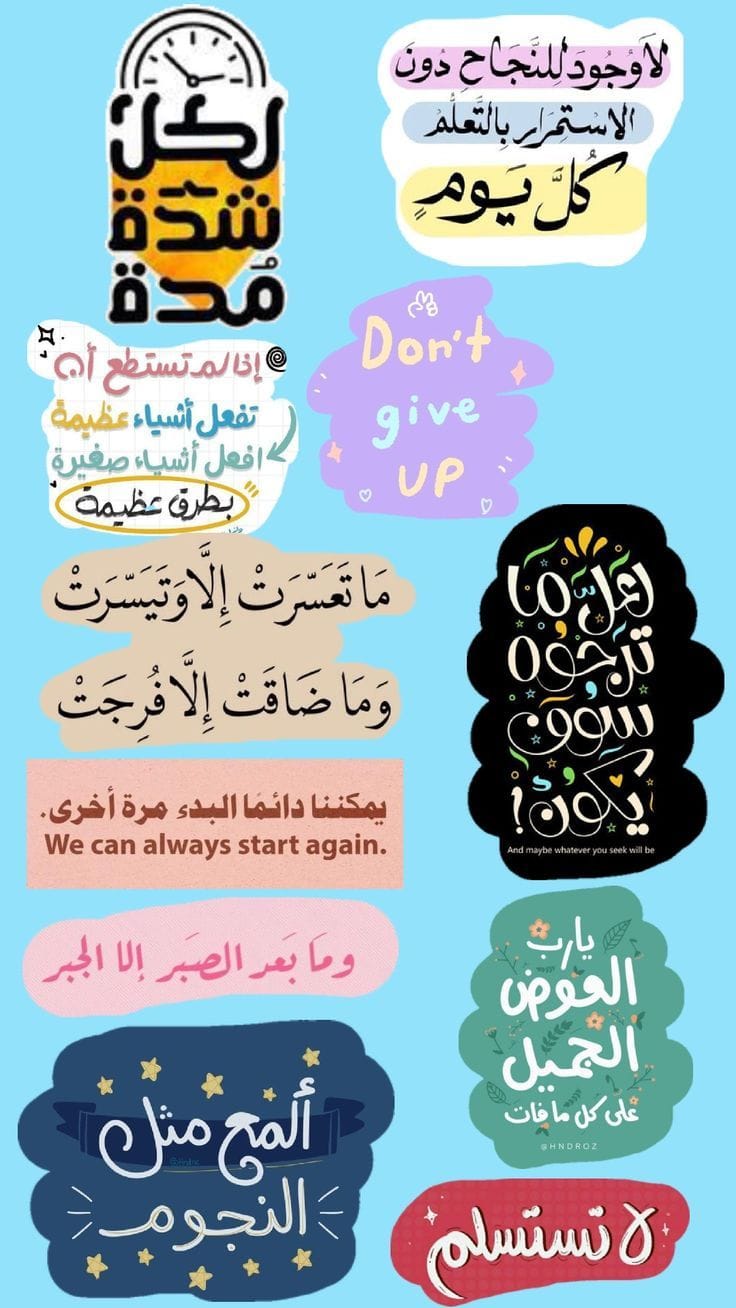 لكل
شدة
مُدة
لَا وُجُودَ لِلنَّجَاحِ دُونَ
الاسْتِمْرَارِ بِالتَّعَلُّمِ
كُلَّ يَومٍ
إذا لم تستطع أن
تفعل أشياء عظيمة
افعل أشياء صغيرة
بطرق عظيمة
Don't
give
UP
مَا تَعَسَّرَتْ إِلَّا وَتَيَسَّرَتْ
وَمَا ضَاقَتْ إِلَّا فُرِجَتْ
لعلّ ما
ترجُوه
سوفَ
يكُونُ!
And maybe whatever you seek will be
يمكننا دائمًا البدء مرة أخرى.
We can always start again.
ومَا بَعد الصبَر إلا الجبر
يارب
العوض
الجميل
على كل ما فات
@HNDROZ
ألمع مثل
النجوم
لا تستسلم